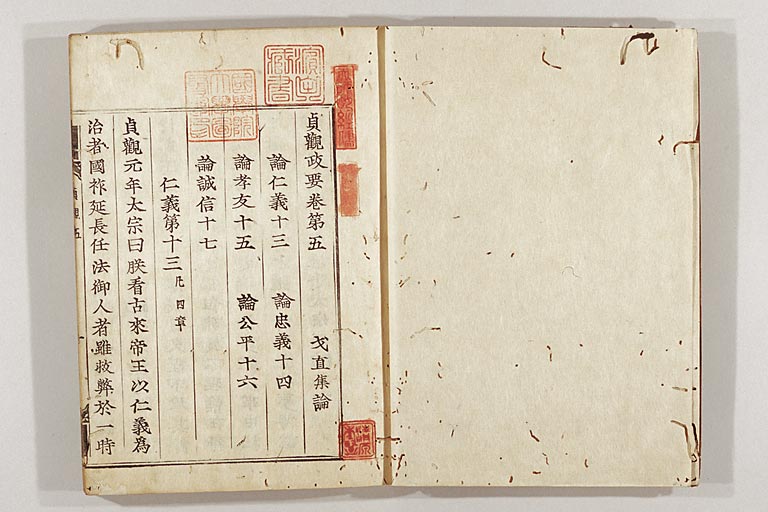 貞觀政要卷第五
戈直集論
論仁義十三 論忠義十四
論孝友十五 論公平十六
論誠信十七
仁義第十三 凡四章
貞觀元年太宗曰朕看古來帝王以仁義爲
治者國祚延長任法御人者雖救弊於一時